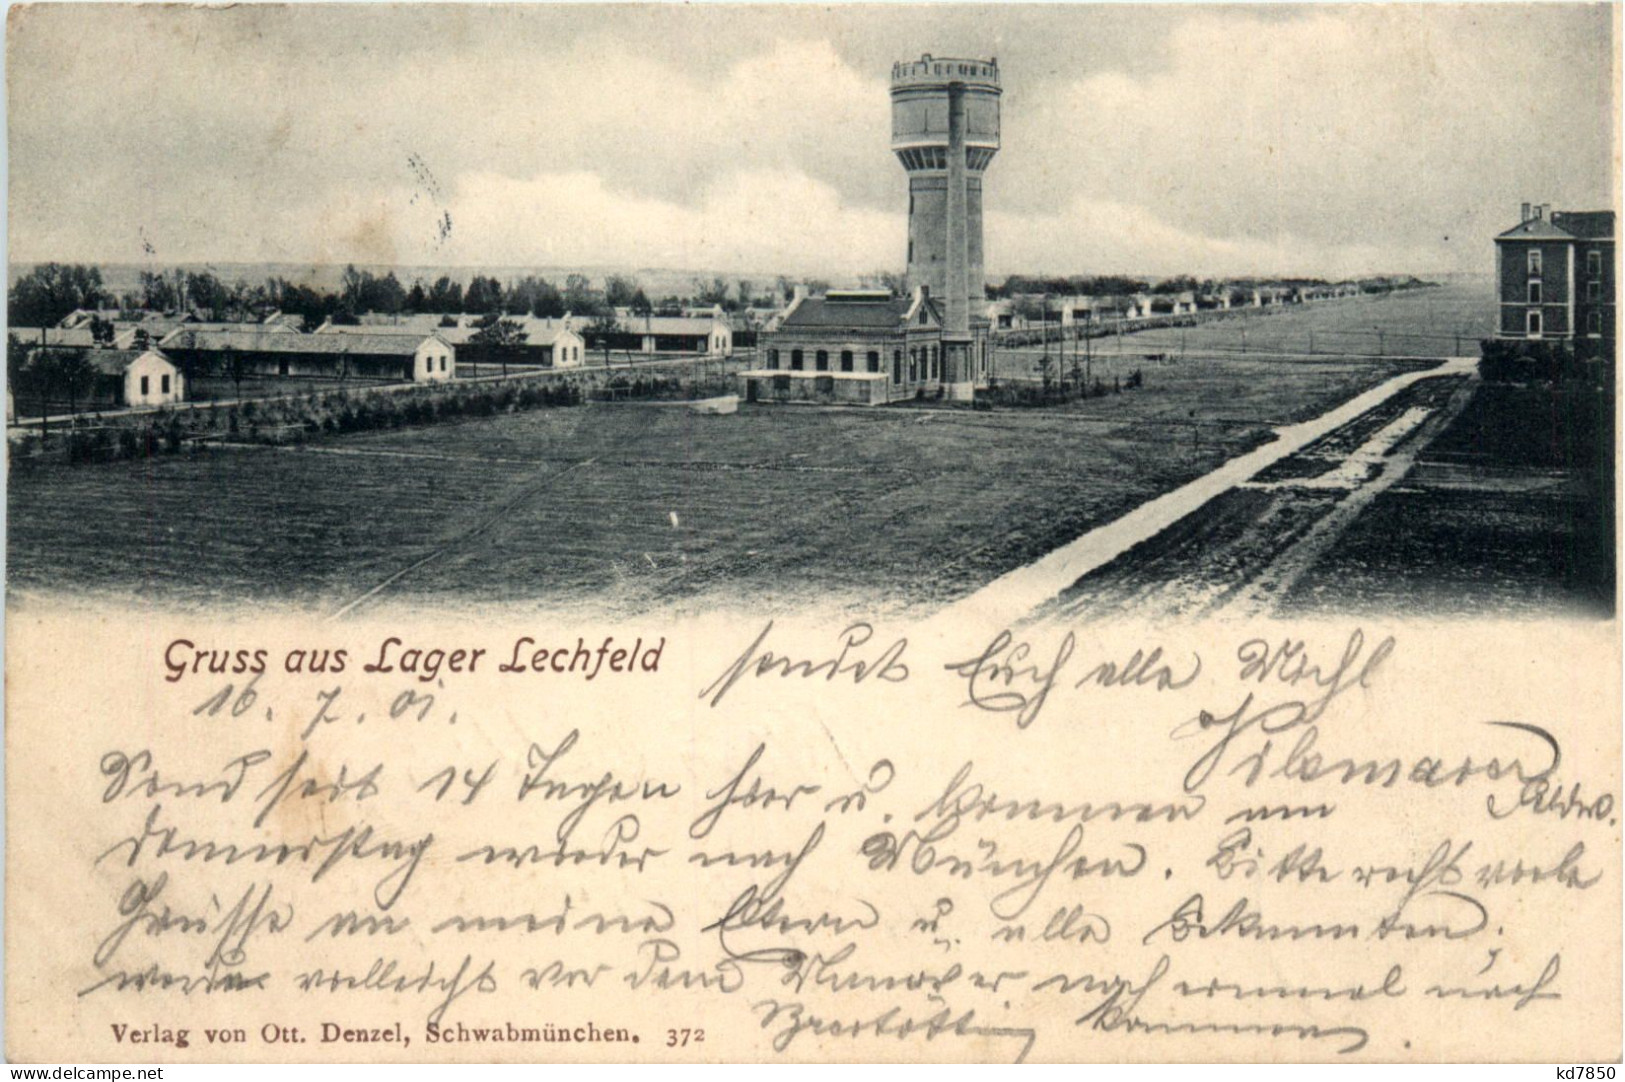 Gruss aus Lager Lechfeld
sendet Euch alle Michl
16. 7. 01.
Sind seit 14 Tagen hier u. kommen am
Donnerstag wieder nach München. Bitte recht viele
Grüsse an meine Eltern u. alle Bekannten.
werde vielleicht vor dem Manöver noch einmal nach
kommen.
Verlag von Ott. Denzel, Schwabmünchen. 372
kd7850